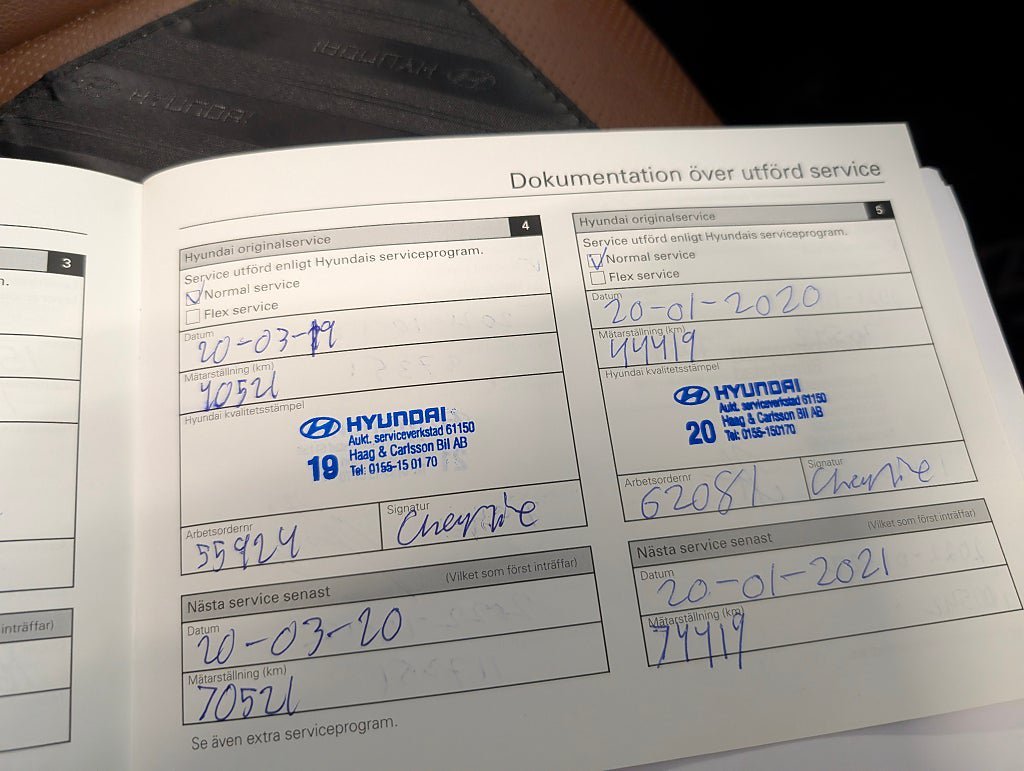 Dokumentation över utförd service
3
n.
inträffar)
4
Hyundai originalservice
Service utförd enligt Hyundais serviceprogram.
Normal service
Flex service
Datum
20-03-19
Mätarställning (km)
40521
Hyundai kvalitetsstämpel
HYUNDAI
Aukt. serviceverkstad 61150
Haag & Carlsson Bil AB
19 Tel: 0155-15 01 70
Arbetsordernr
55924
Signatur
Nästa service senast
(Vilket som först inträffar)
Datum
20-03-20
Mätarställning (km)
70521
Se även extra serviceprogram.
5
Hyundai originalservice
Service utförd enligt Hyundais serviceprogram.
Normal service
Flex service
Datum
20-01-2020
Mätarställning (km)
44419
Hyundai kvalitetsstämpel
HYUNDAI
Aukt. serviceverkstad 61150
Haag & Carlsson Bil AB
20 Tel: 0155-150170
Arbetsordernr
62081
Signatur
Nästa service senast
(Vilket som först inträffar)
Datum
20-01-2021
Mätarställning (km)
74419
HYUNDAI
HYUNDAI